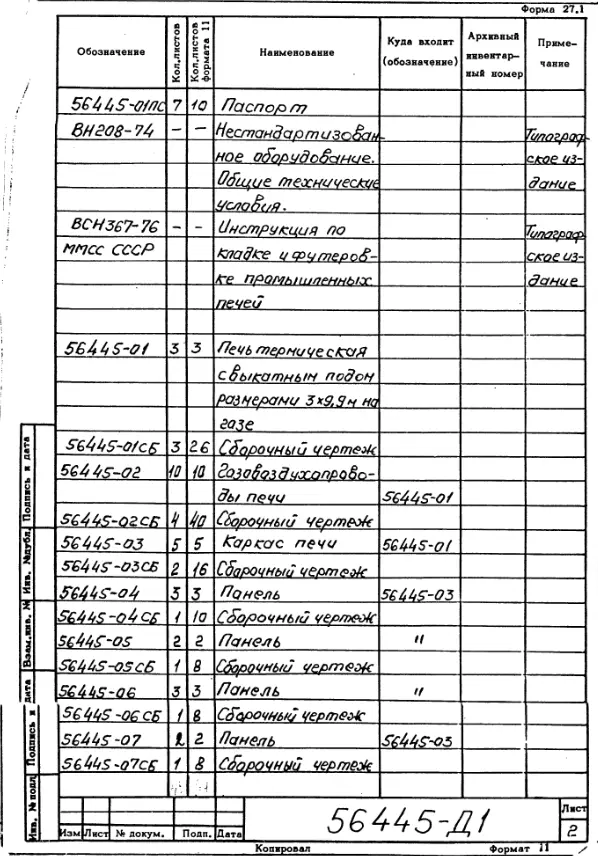 Форма 27.1
Обозначение Кол.листов Кол.листов формата 11 Наименование Куда входит (обозначение) Архивный инвентар-ный номер Приме-чание
56445-01ПС 7 10 Паспорт
ВН208-74 – – Нестандартизован- Типограф-
ное оборудование. ское из-
Общие технические дание
условия.
ВСН367-76 – – Инструкция по Типограф-
ММСС СССР кладке и футеров- ское из-
ке промышленных дание
печей
56445-01 3 3 Печь термическая
с выкатным подом
размерами 3х9,9м на
газе
56445-01СБ 3 26 Сборочный чертеж
56445-02 10 10 Газовоздухопрово-
ды печи 56445-01
56445-02СБ 4 40 Сборочный чертеж
56445-03 5 5 Каркас печи 56445-01
56445-03СБ 2 16 Сборочный чертеж
56445-04 3 3 Панель 56445-03
56445-04СБ 1 10 Сборочный чертеж
56445-05 2 2 Панель "
56445-05СБ 1 8 Сборочный чертеж
56445-06 3 3 Панель "
56445-06СБ 1 8 Сборочный чертеж
56445-07 2 2 Панель 56445-03
56445-07СБ 1 8 Сборочный чертеж
Подпись и дата
Инв. №дубл.
Взам.инв. №
Подпись и дата
Инв. №подл
56445-Д1 Лист
2
Изм Лист № докум. Подп. Дата
Копировал Формат 11